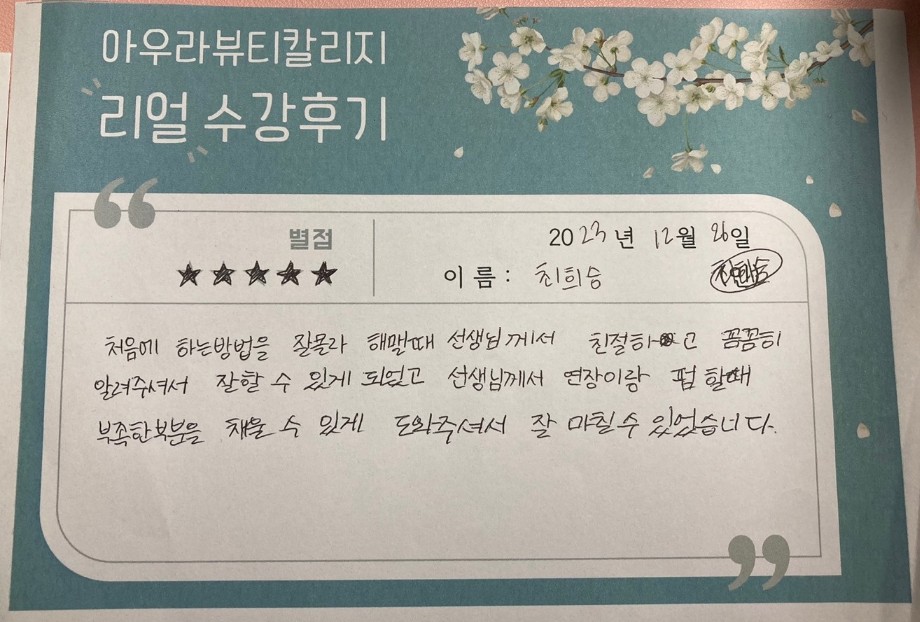 아우라뷰티칼리지
리얼 수강후기
별점
★★★★★
2023년 12월 26일
이름 : 최희승
처음에 하는방법을 잘몰라 해맬때 선생님께서 친절하고 꼼꼼히
알려주셔서 잘할 수 있게 되었고 선생님께서 연장이랑 펌 할때
부족한부분을 채울 수 있게 도와주셔서 잘 마칠수 있었습니다.